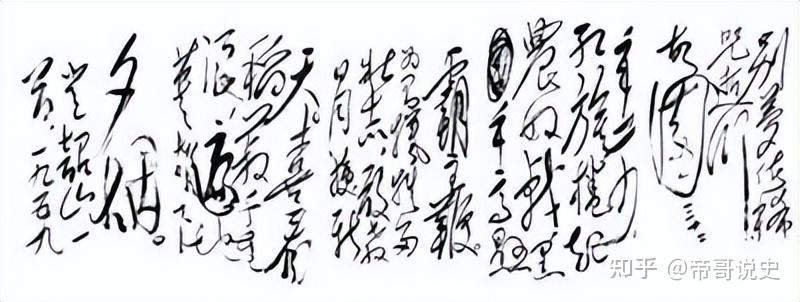 别梦依稀
咒逝川
故园三十二
年前
红旗卷起
农奴戟黑
手高悬
霸主鞭
为有牺牲多
壮志敢教
日月换新
天。喜看
稻菽千重
浪，遍地
英雄下
夕烟。
登韶山一
首，一九五九
知乎 @帝哥说史